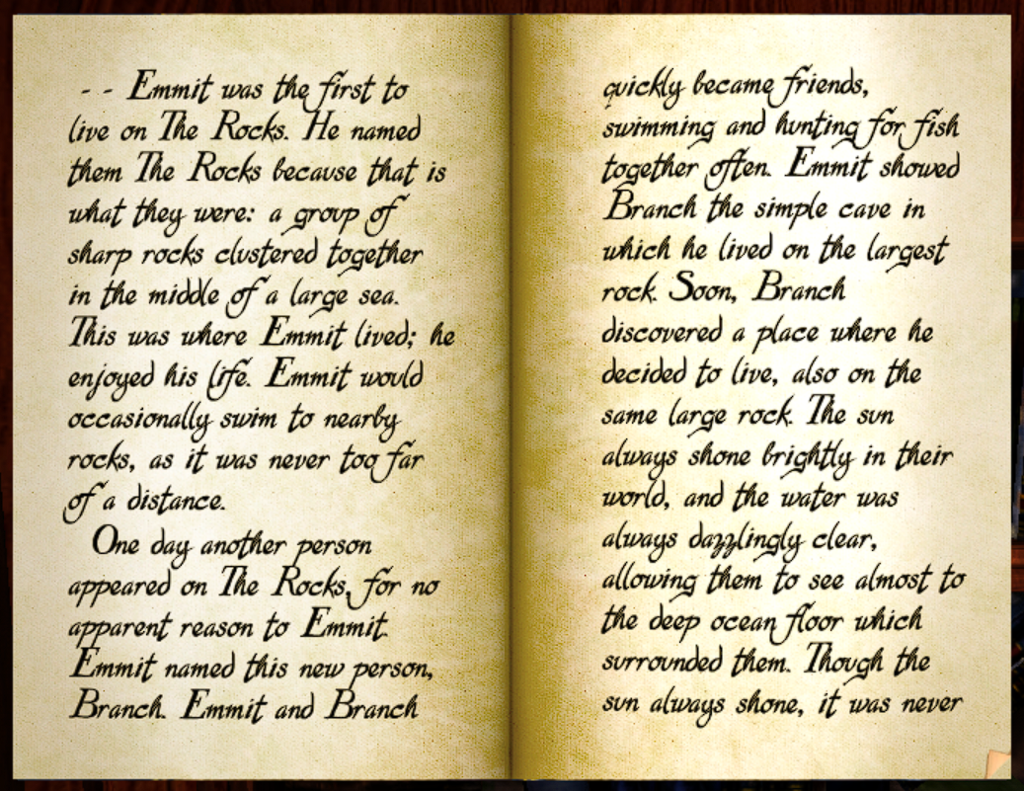 - - Emmit was the first to
live on The Rocks. He named
them The Rocks because that is
what they were: a group of
sharp rocks clustered together
in the middle of a large sea.
This was where Emmit lived; he
enjoyed his life. Emmit would
occasionally swim to nearby
rocks, as it was never too far
of a distance.
One day another person
appeared on The Rocks, for no
apparent reason to Emmit.
Emmit named this new person,
Branch. Emmit and Branch
quickly became friends,
swimming and hunting for fish
together often. Emmit showed
Branch the simple cave in
which he lived on the largest
rock. Soon, Branch
discovered a place where he
decided to live, also on the
same large rock. The sun
always shone brightly in their
world, and the water was
always dazzlingly clear,
allowing them to see almost to
the deep ocean floor which
surrounded them. Though the
sun always shone, it was never